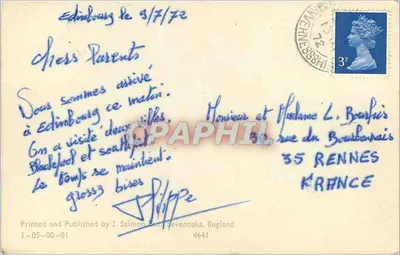 Edinbourg le 9/7/72
Chers Parents
Nous sommes arrivé
à Edinbourg ce matin.
On a visité deux villes.
Blackpool et
Le temps se maintient.
gross bises
Philippe
Monsieur et Madame L.
rue du Bourbonnais
35 RENNES
FRANCE
3P
INVERNESS
72
CPAPHIL
Printed and Published by J. Salmon Sevenoaks, England
1-05-00-01
4641